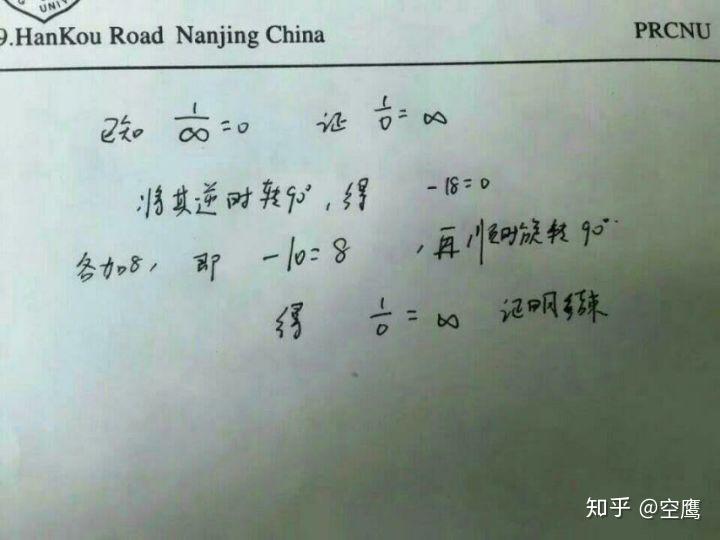 UNIV
9.HanKou Road Nanjing China PRCNU
已知 1/∞ = 0 证 1/0 = ∞
将其逆时转90°,得 -18=0
各加8, 即 -10=8 ,再顺时旋转90°.
得 1/0 = ∞ 证明结束
知乎 @空鹰